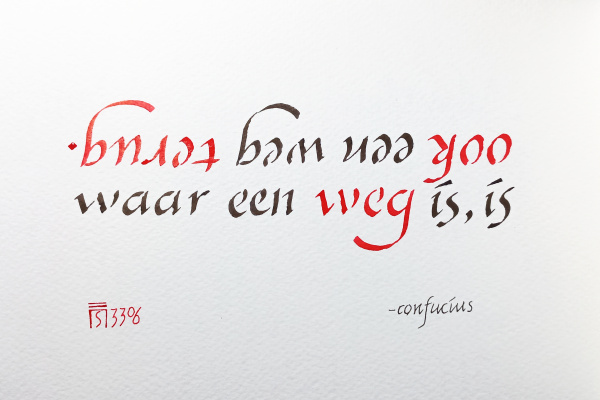 waar een weg is, is
ook een weg terug.
-confucius
3306